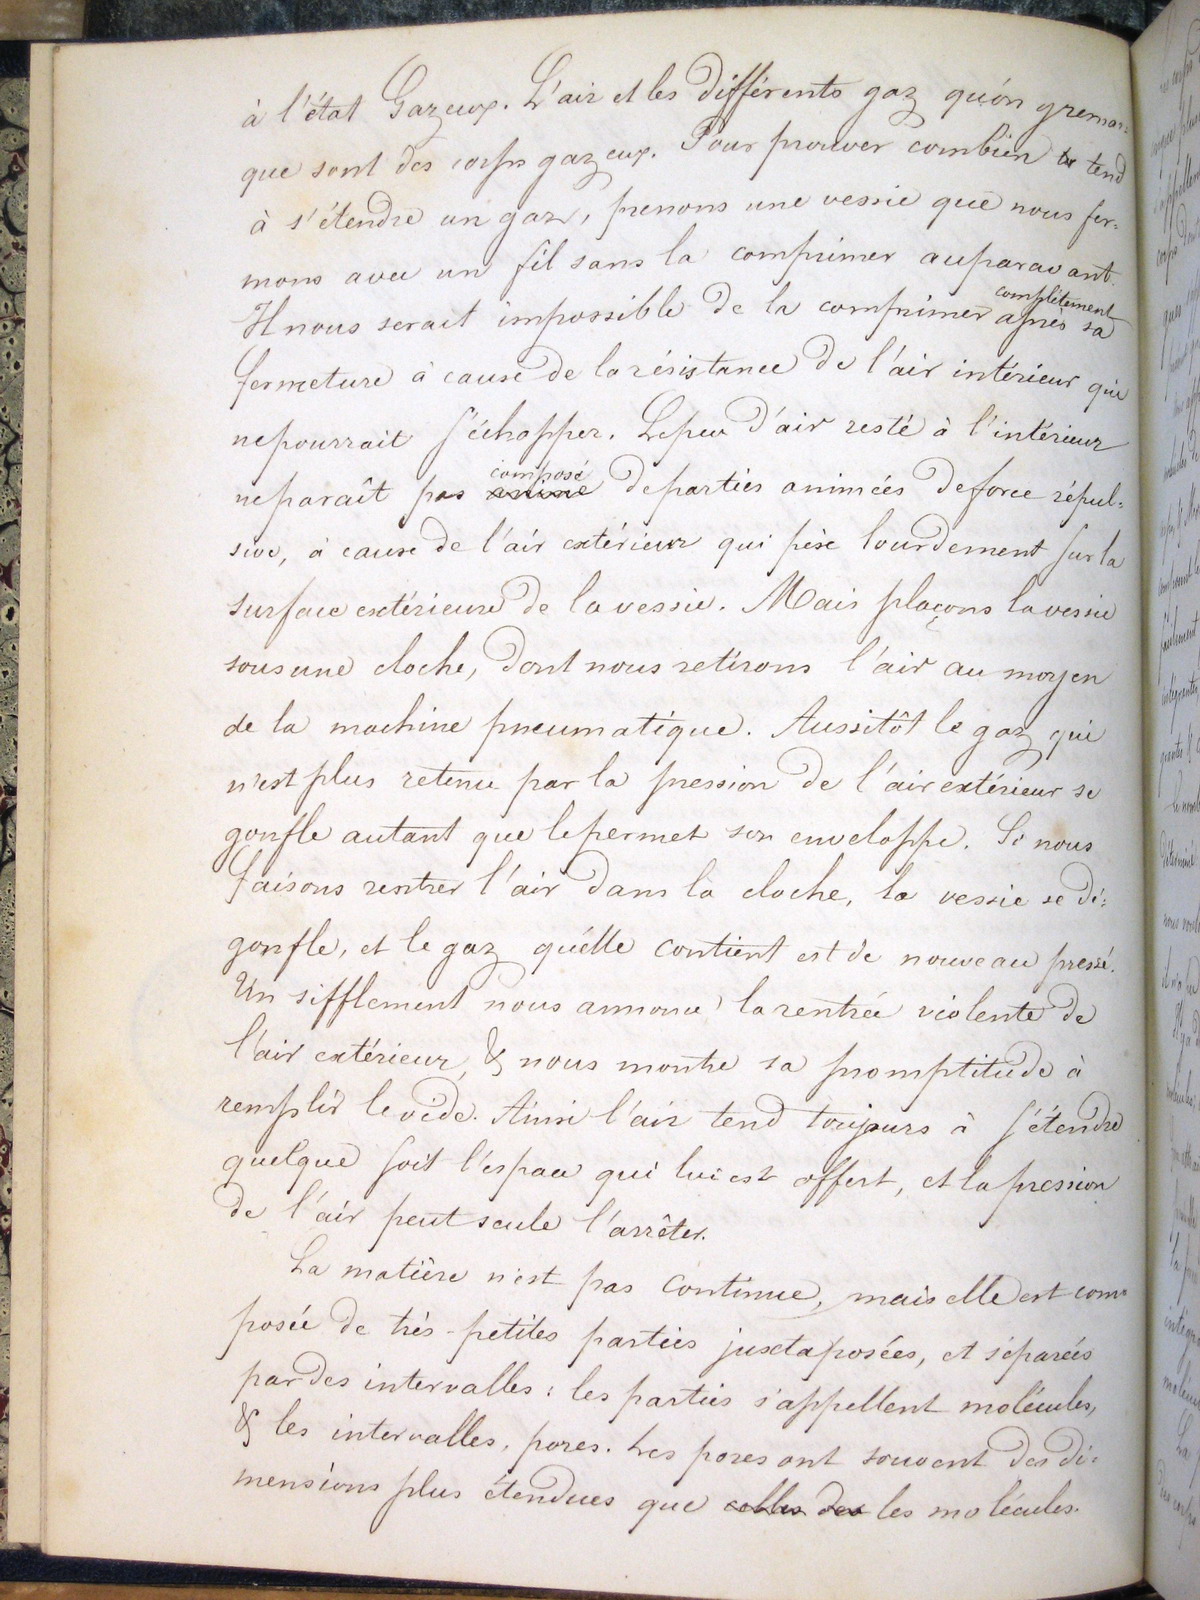 à l'état Gazeux. L'air et les différents gaz qu'on y remar-
que sont des corps gazeux. Pour prouver combien tend
à s'étendre un gaz, prenons une vessie que nous fer-
mons avec un fil sans la comprimer auparavant.
complètement
Il nous serait impossible de la comprimer après sa
fermeture à cause de la résistance de l'air intérieur qui
ne pourrait s'échapper. Le peu d'air resté à l'intérieur
composé
ne paraît pas animé de parties animées de force répul-
sive, à cause de l'air extérieur qui pèse lourdement sur la
surface extérieure de la vessie. Mais plaçons la vessie
sous une cloche, dont nous retirons l'air au moyen
de la machine pneumatique. Aussitôt le gaz qui
n'est plus retenu par la pression de l'air extérieur se
gonfle autant que le permet son enveloppe. Si nous
faisons rentrer l'air dans la cloche, la vessie se dé-
gonfle, et le gaz qu'elle contient est de nouveau pressé.
Un sifflement nous annonce la rentrée violente de
l'air extérieur, & nous montre sa promptitude à
remplir le vide. Ainsi l'air tend toujours à s'étendre
quelque soit l'espace qui lui est offert, et la pression
de l'air peut seule l'arrêter.
La matière n'est pas continue, mais elle est com-
posée de très-petites parties juxtaposées, et séparées
par des intervalles : les parties s'appellent molécules,
& les intervalles, pores. Les pores ont souvent des di-
mensions plus étendues que celles des les molécules.